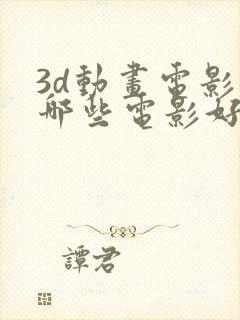 3d動畫電影
哪些電影好
譚君